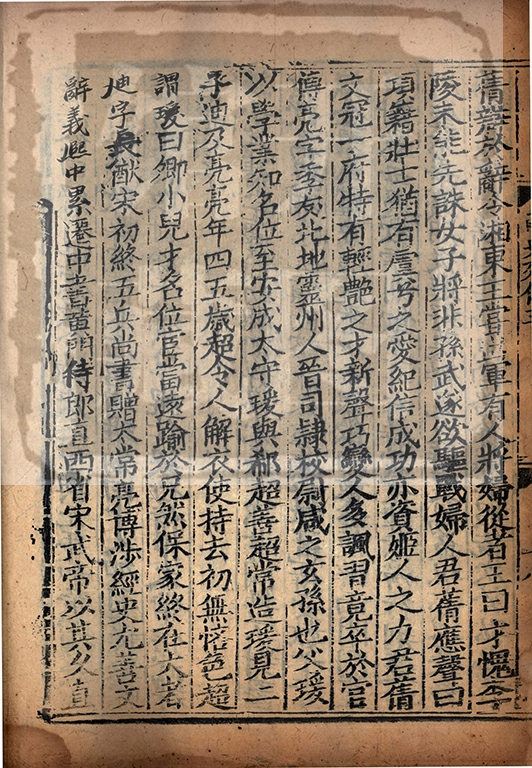 蒨辯於辭令湘東王嘗出軍有人將婦從者王曰才愧李
陵未能先誅女子將非孫武遂欲驅戰婦人君蒨應聲曰
項籍壯士猶有虞兮之愛紀信成功亦資姬人之力君蒨
文冠一府特有輕艷之才新聲巧變人多諷習竟卒於官
傅亮字季友北地靈州人晉司隸校尉咸之玄孫也父瑗
以學業知名位至安成太守瑗與郗超善超常造瑗見二
子迪及亮亮年四五歲超令人解衣使持去初無悋色超
謂瑗曰卿小兒才名位官當遠踰於兄然保家終在大者
迪字長猷宋初終五兵尚書贈太常亮博涉經史尤善文
辭義興中累遷中書黃門待郎直西省宋武帝以其久直